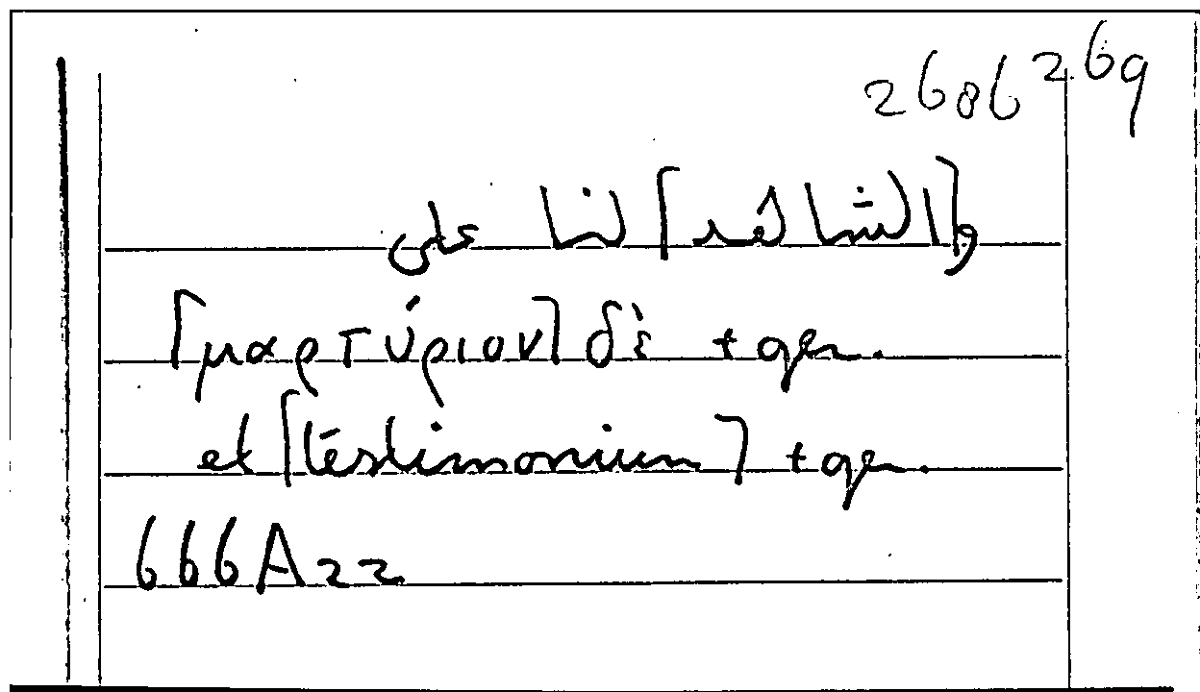 2686 269
و[الشاهد] لنا على
[μαρτύριον] δὲ + gen.
et [testimonium] + gen.
666A22